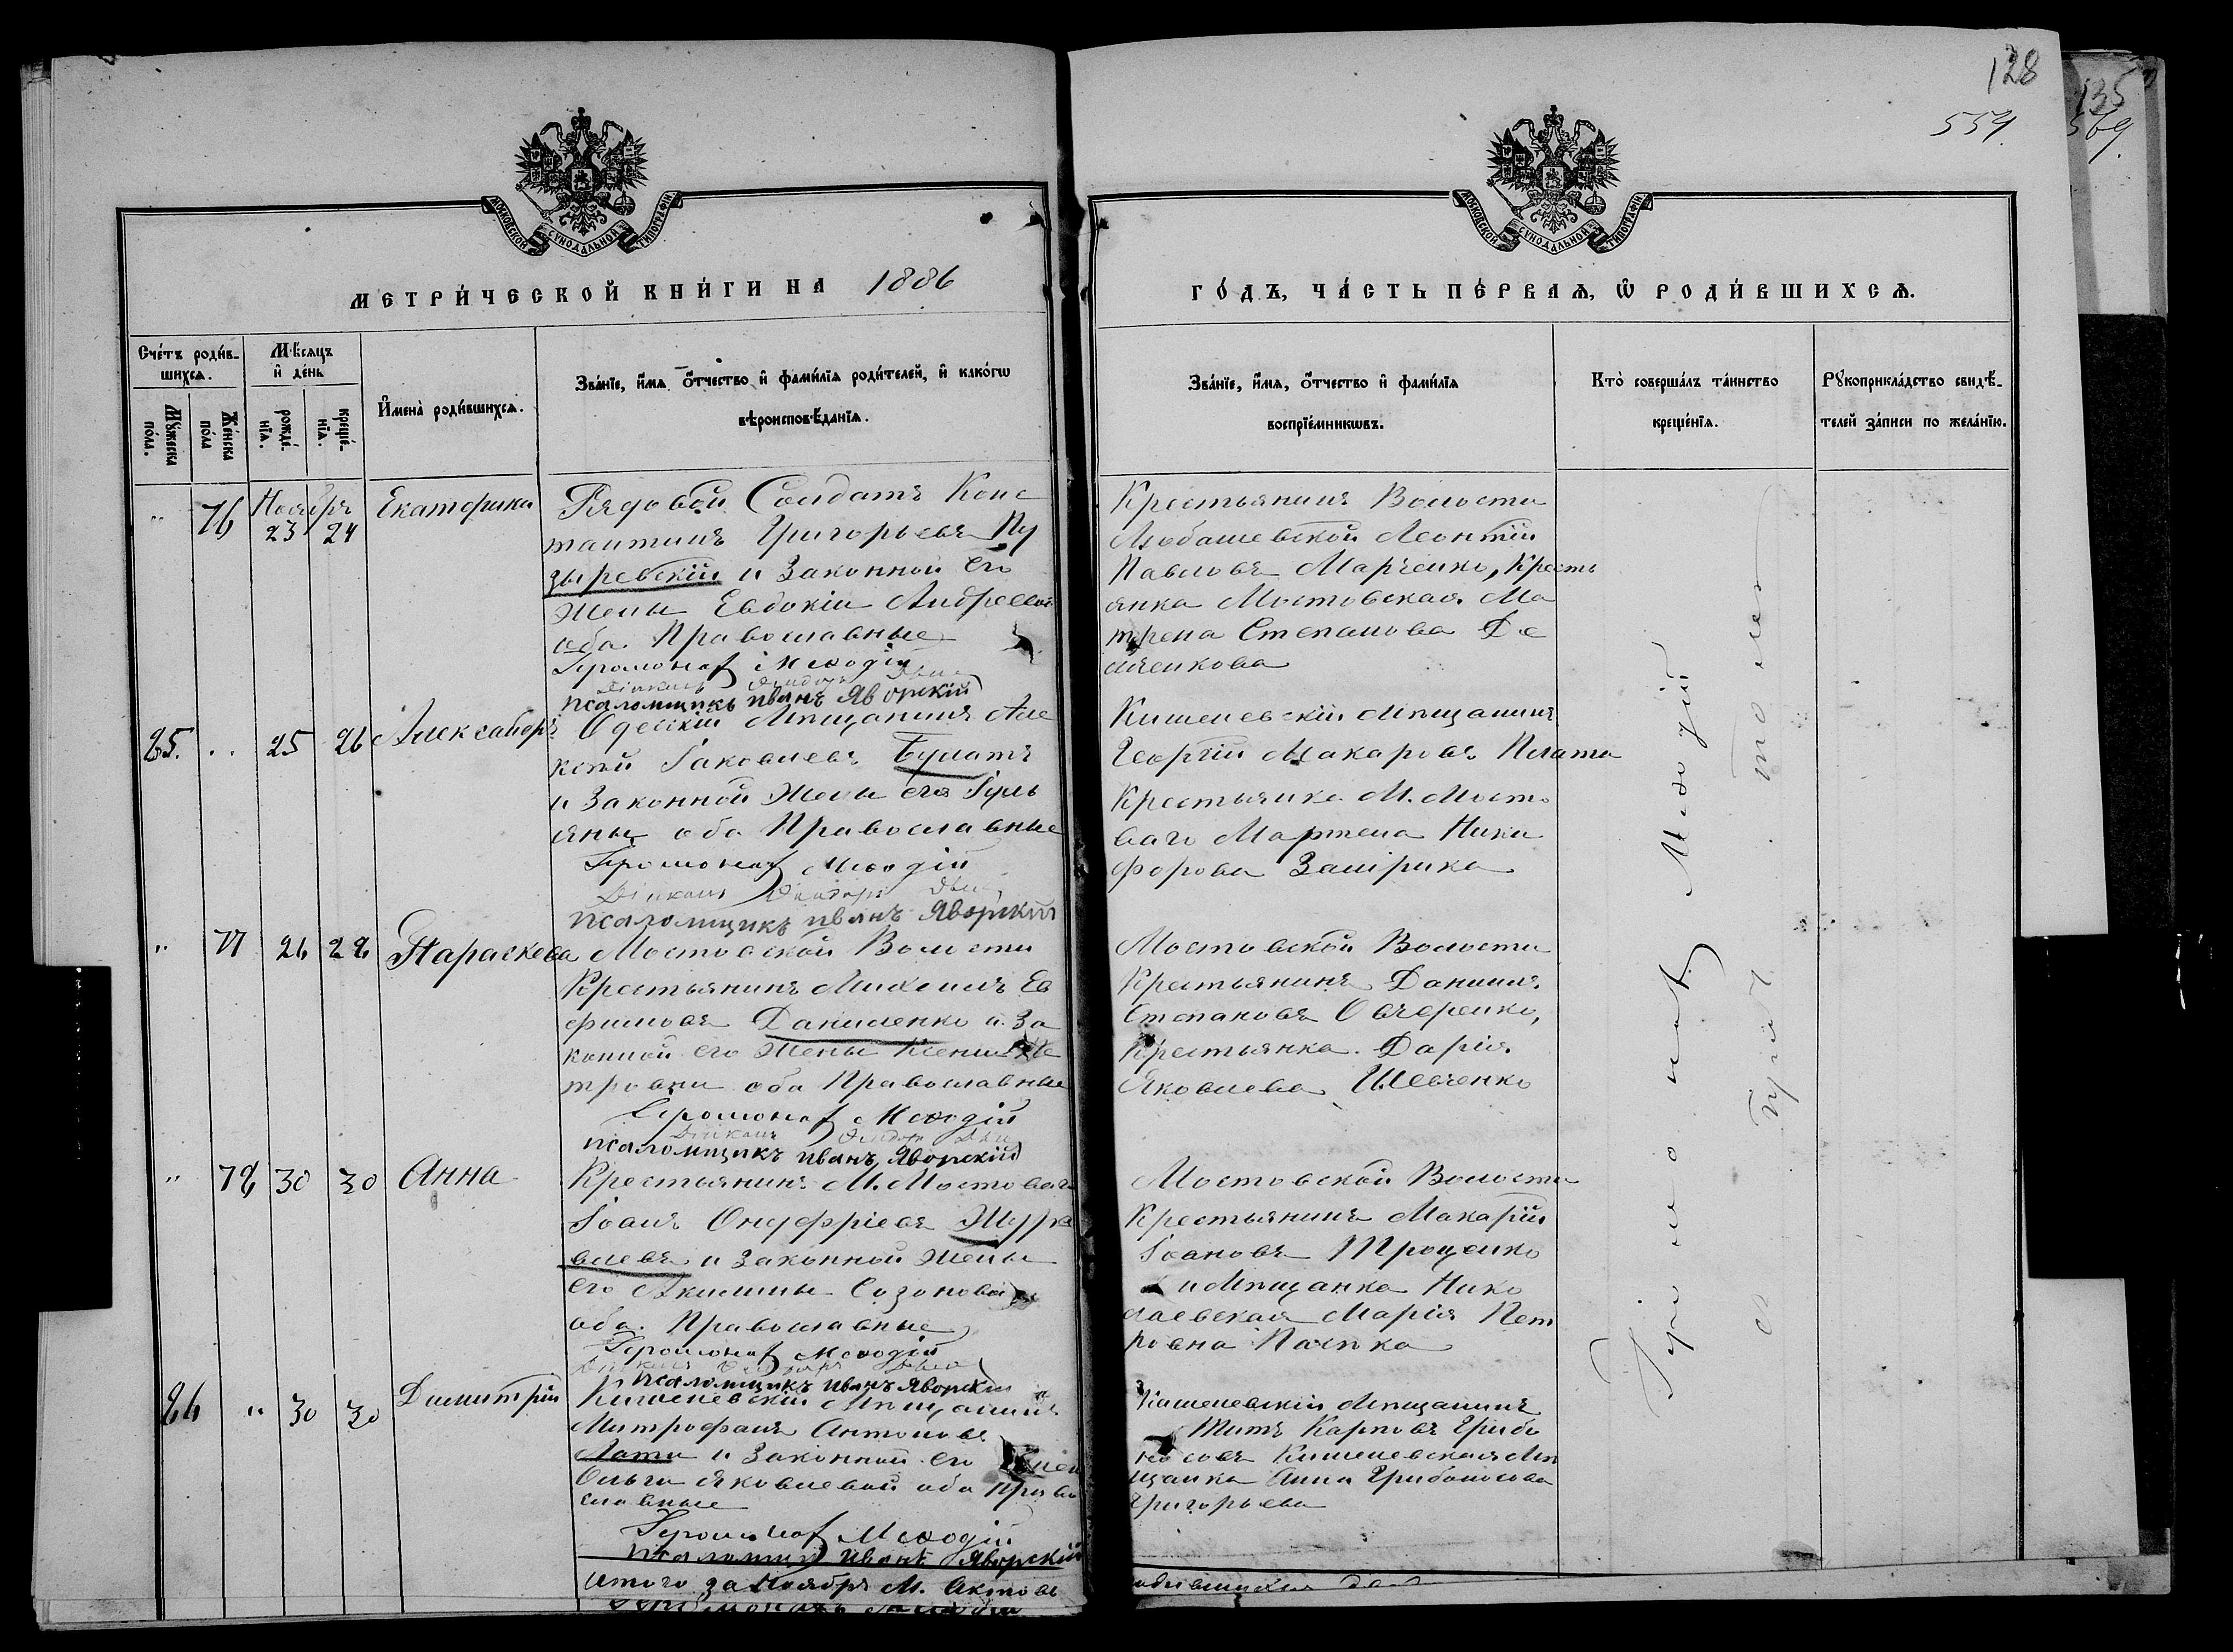 128
135
559.
569.
МОСКОВСКОЙ СУНОДАЛЬНОЙ ТИПОГРАФІИ
МОСКОВСКОЙ СУНОДАЛЬНОЙ ТИПОГРАФІИ
МЕТРИ́ЧЕСКОЙ КНИ́ГИ НА 1886
ГО́ДЪ, ЧА́СТЬ ПЕ́РВАѦ, Ѡ РОДИ́ВШИХСѦ.
Сче́тъ роди́в-
шихсѧ.
Мꙋ́жеска по́ла.
Же́нска по́ла
Мѣ́сѧцъ
и҆ де́нь
рожде́-
нїѧ.
креще́-
нїѧ.
И҆мена̀ роди́вшихсѧ.
Зва́нїе, и҆́мѧ ѻ҆́тчество и҆ фами́лїѧ роди́телей, и҆ како́гѡ
вѣроисповѣ́данїѧ.
Зва́нїе, и҆́мѧ, ѻ҆́тчество и҆ фами́лїѧ
воспрїе́мникѡвъ.
Кто̀ соверша́лъ та́инство
креще́нїѧ.
Рꙋкоприкла́дство свидѣ́-
телей за́писи по жела́нїю.
" 76 Ноября 23 24 Екатерина
Рядовой Солдатъ Конс
тантинъ Григорьевъ Пу
зыревскій и Законной его
жены Евдокіи Андреевой
оба Православные
Іеромонах Меѳодій
Діаконъ
псаломщикъ иванъ Яворскій
Крестьянинъ Волости
Любашевской Леонтій
Павловъ Марченко, Кресть
янка Мостовская Ма
трена Степанова Де
мченкова
85. " 25 26 Александръ
Одескій Мѣщанинъ Але
ксѣй Іаковлевъ Булатъ
и Законной Жены его Іуль
яны оба Православные
Іеромонах Меѳодій
Діаконъ
псаломщикъ иванъ Яворскій
Кишеневскій Мѣщанинъ
Георгій Макаровъ Плата
Крестьянка М. Мосто
ваго Марѳена Ники
форова
" 77 26 28 Параскева
Мостовской Волости
Крестьянинъ Михаилъ Ев
фимовъ Даниленко и За
конной его Жены Ксеніи Пе
тровни оба Православные
Іеромонах Меѳодій
Діаконъ
псаломщикъ иванъ Яворскій
Мостовской Волости
Крестьянинъ Даніилъ
Степановъ Овчаренко,
Крестьянка Дарія
Яковлева Шевченко
" 78 30 30 Анна
Крестьянинъ М. Мостоваго
Іоанъ Онуфріевъ Жура
влевъ и Законной Жены
его Акилины Созоновой
оба Православные
Іеромонах Меѳодій
Діаконъ
псаломщикъ иванъ Яворскій
Мостовской Волости
Крестьянинъ Макарій
Іоановъ Троценко
и Мѣщанка Нико
лаевская Марія Пет
ровна
86 " 30 30 Димитрій
Кишеневскій Мѣщанинъ
Митрофанъ Антоновъ
и Законной его Жены
Ольги Яковлевой оба Право
славные
Іеромонах Меѳодій
псаломщик иванъ Яворскій
Итого за Ноябрь М. Актовъ
Кишеневскій Мѣщанинъ
Титъ Карповъ Грибо
носовъ Кишеневская Мѣ
щанка Анна Грибоносова
Григорьева
Іеромонах Меѳодій